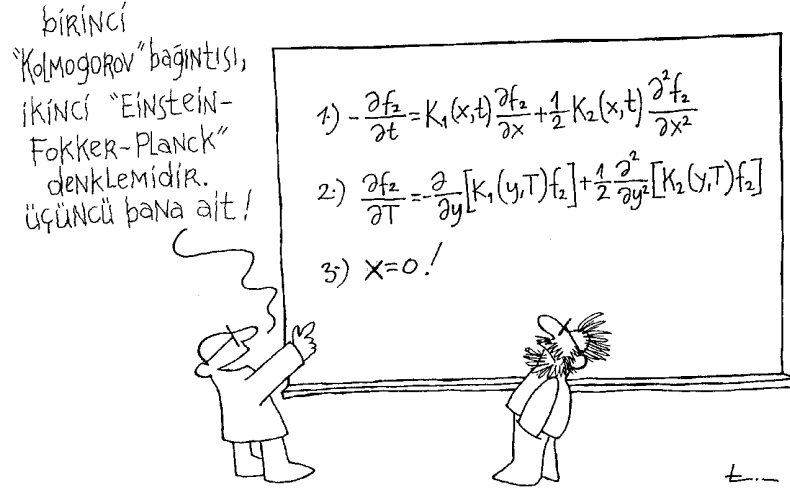 BİRİNCİ
"KOLMOGOROV" BAĞINTISI,
İKİNCİ "EİNSTEİN-
FOKKER-PLANCK"
DENKLEMİDİR.
ÜÇÜNCÜ BANA AİT!
1.) -∂f₂/∂t = K₁(x,t) ∂f₂/∂x + 1/2 K₂(x,t) ∂²f₂/∂x²
2.) ∂f₂/∂T = -∂/∂y [K₁(y,T)f₂] + 1/2 ∂²/∂y² [K₂(y,T)f₂]
3.) X=0!